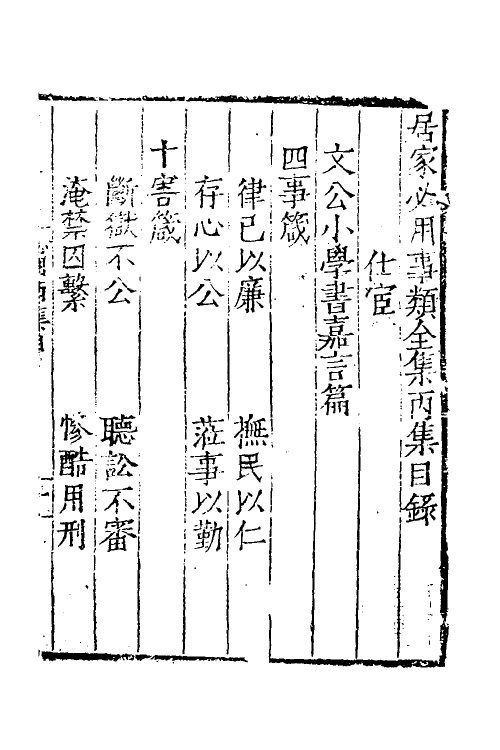 居家必用事類全集丙集目錄
仕宦
文公小學書嘉言篇
四事箴
律己以廉 撫民以仁
存心以公 蒞事以勤
十害箴
斷獄不公 聽訟不審
淹禁囚繫 慘酷用刑